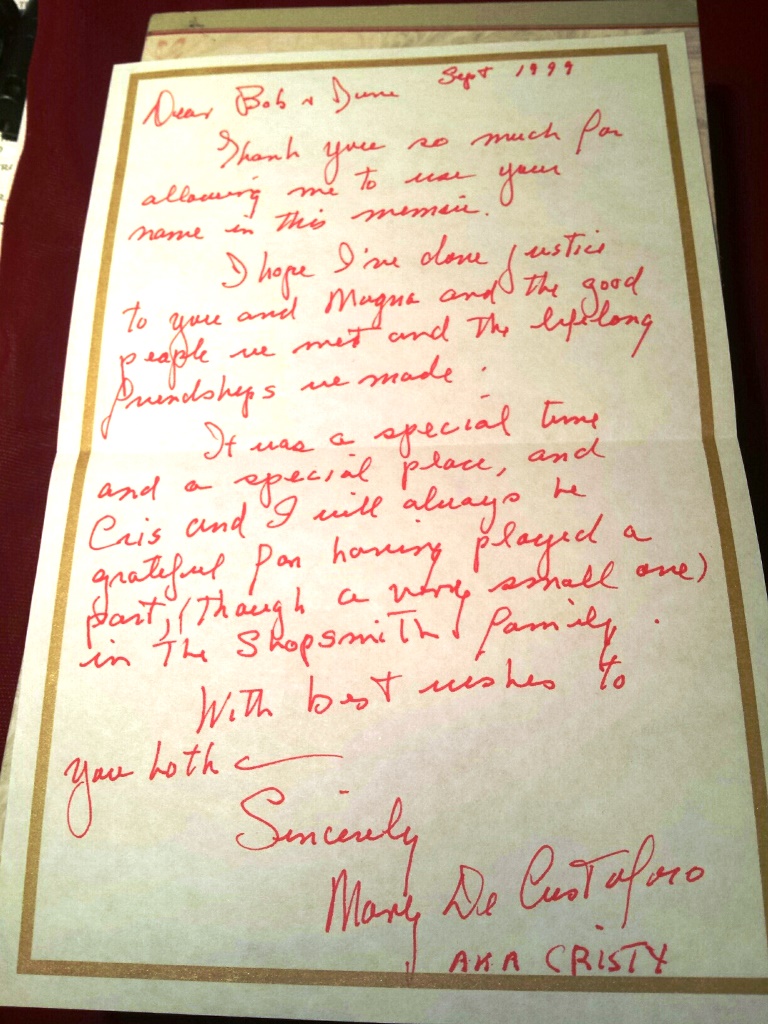 Sept 1999
Dear Bob &
Thank you so much for
allowing me to use your
name in this memoir.
I hope I've done justice
to you and Magna and the good
people we met and the lifelong
friendships we made.
It was a special time
and a special place, and
Cris and I will always be
grateful for having played a
part, (though a very small one)
in The Shopsmith family.
With best wishes to
you both
Sincerely
Mary De Custoforo
AKA CRISTY